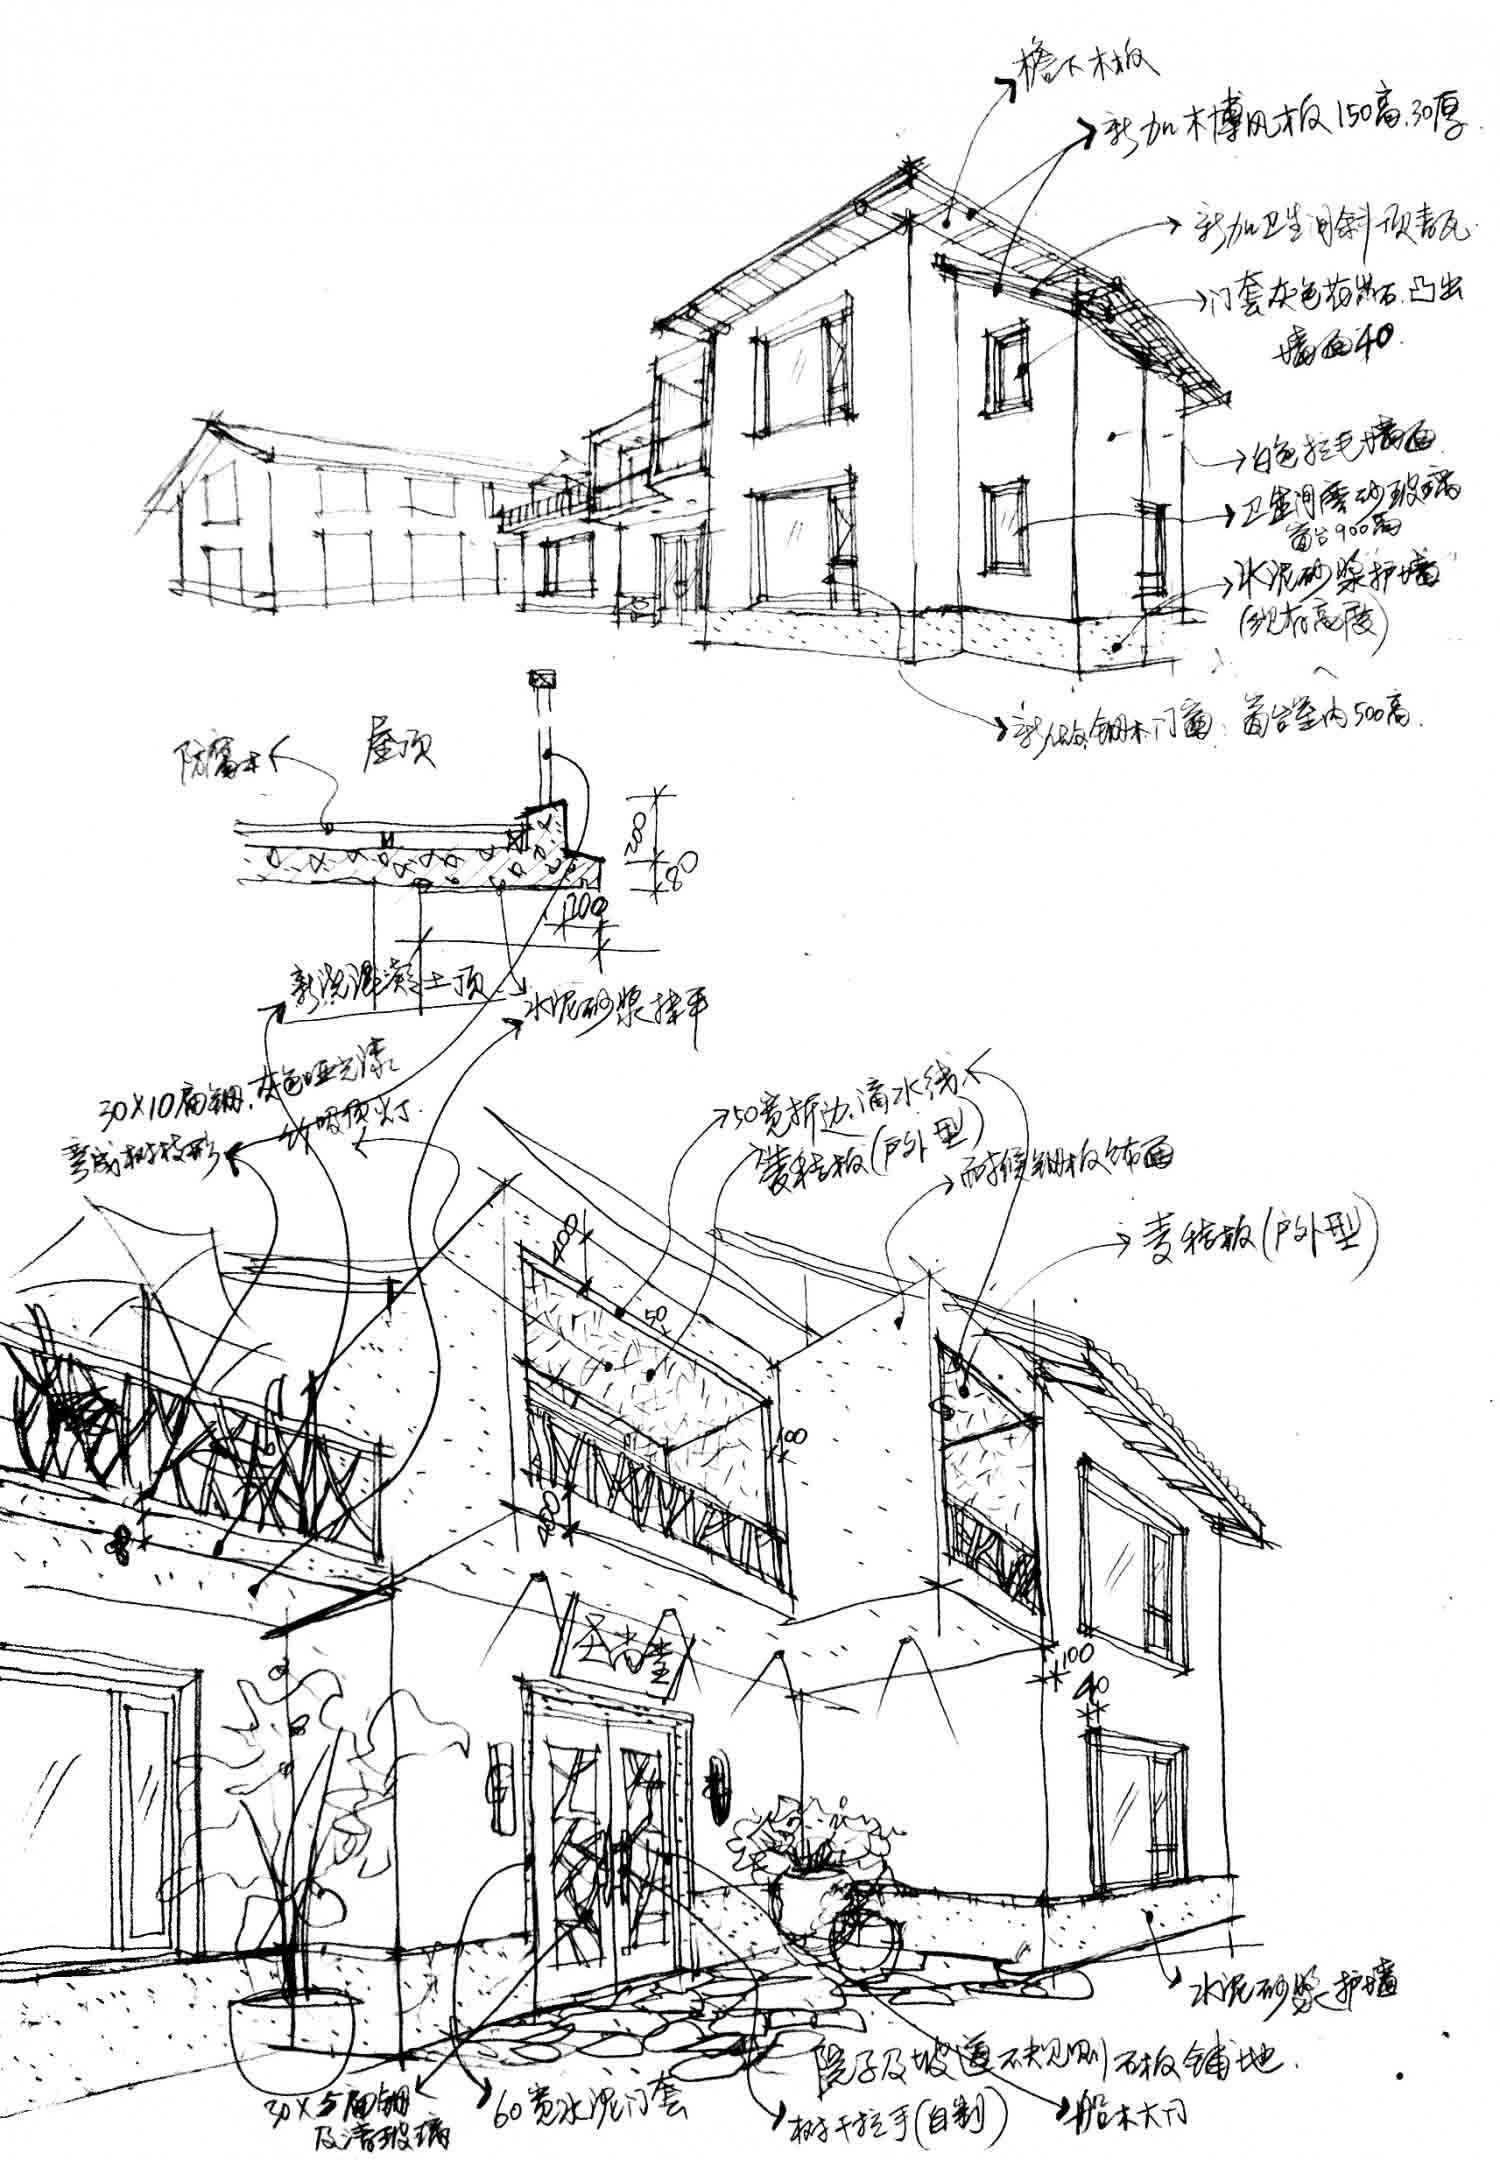 檐下木板
新加木博风板150高.30厚.
新加卫生间斜顶青瓦.
门套灰色花岗石.凸出
墙面40.
白色拉毛墙面
卫生间磨砂玻璃
窗台900高
水泥砂浆护墙
(现存高度)
新做钢木门窗:窗台室内500高.
防腐木
屋顶
200
80
200
新浇混凝土顶
水泥砂浆抹平
30X10扁钢.灰色哑光漆
弯成树枝形
吸顶灯.
50宽折边.滴水线
麦秸板(户外型)
耐候钢板饰面
麦秸板(户外型)
400
50
100
400
100
40
水泥砂浆护墙
院子及坡道不规则石板铺地.
30X5扁钢
及清玻璃
60宽水泥门套
树干拉手(自制)
船木大门